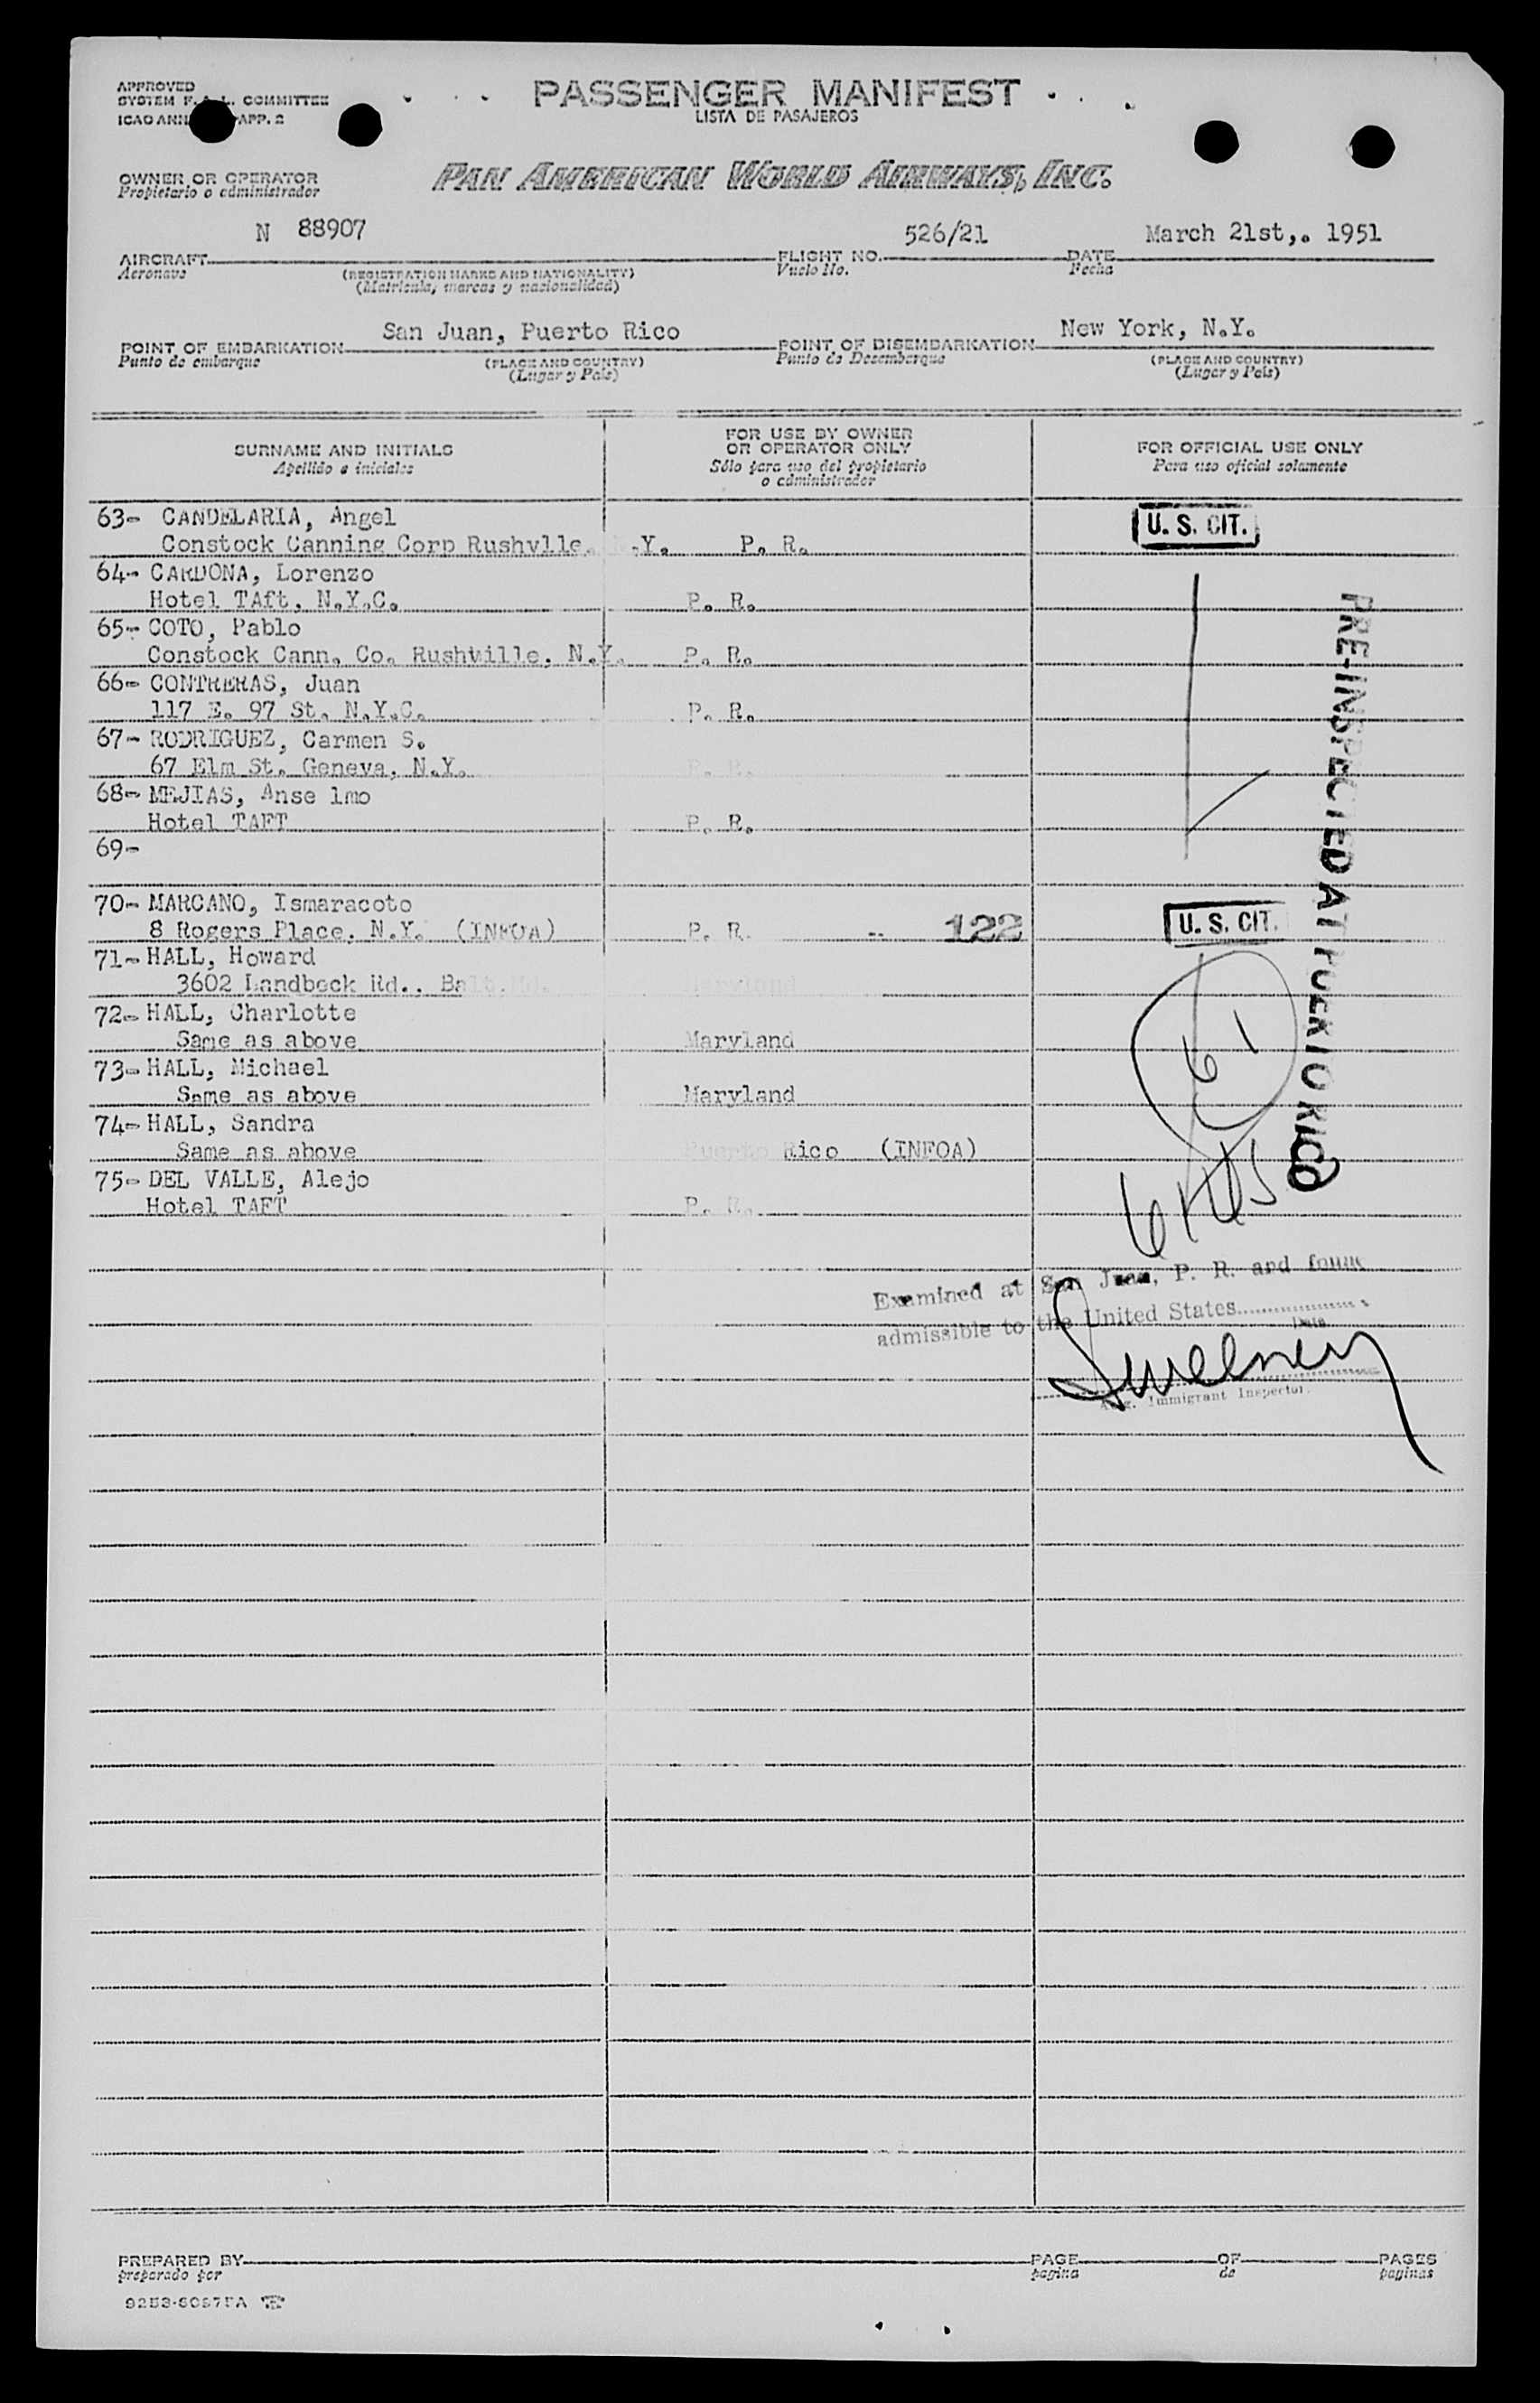 APPROVED
SYSTEM F.A.L. COMMITTEE
ICAO APP. 2
PASSENGER MANIFEST
LISTA DE PASAJEROS
OWNER OR OPERATOR
Propietario o administrador
PAN AMERICAN WORLD AIRWAYS, INC.
N 88907
526/21
March 21st,. 1951
AIRCRAFT
Aeronave
(REGISTRATION MARKS AND NATIONALITY)
(Matricula, marcas y nacionalidad)
FLIGHT NO.
Vuelo No.
DATE
Fecha
San Juan, Puerto Rico
New York, N.Y.
POINT OF EMBARKATION
Punto de embarque
(PLACE AND COUNTRY)
(Lugar y País)
POINT OF DISEMBARKATION
Punto de Desembarque
(PLACE AND COUNTRY)
(Lugar y País)
SURNAME AND INITIALS
Apellido e iniciales
FOR USE BY OWNER
OR OPERATOR ONLY
Sólo para uso del propietario
o administrador
FOR OFFICIAL USE ONLY
Para uso oficial solamente
63- CANDELARIA, Angel
Constock Canning Corp Rushvlle. .Y. P. R.
U. S. CIT.
64- CARDONA, Lorenzo
Hotel TAft, N.Y.C. P. R.
65- COTO, Pablo
Constock Cann. Co. Rushville, N.Y. P. R.
66- CONTRERAS, Juan
117 E. 97 St. N.Y.C. P. R.
67- RODRIGUEZ, Carmen S.
67 Elm St. Geneva, N.Y. P. R.
68- MEJIAS, Anse lmo
Hotel TAFT P. R.
69-
70- MARCANO, Ismaracoto
8 Rogers Place, N.Y. (INFOA) P. R. -- 122
U. S. CIT.
71- HALL, Howard
3602 Landbeck Rd., Balt. Md. Maryland
72- HALL, Charlotte
Same as above Maryland
73- HALL, Michael
Same as above Maryland
74- HALL, Sandra
Same as above Puerto Rico (INFOA)
75- DEL VALLE, Alejo
Hotel TAFT P. R.
PRE-INSPECTED AT PUERTO RICO
61
Examined at San Juan, P. R. and found
admissible to the United States
Date
Sweeney
Immigrant Inspector.
PREPARED BY
preparado por
PAGE
pagina
OF
de
PAGES
paginas